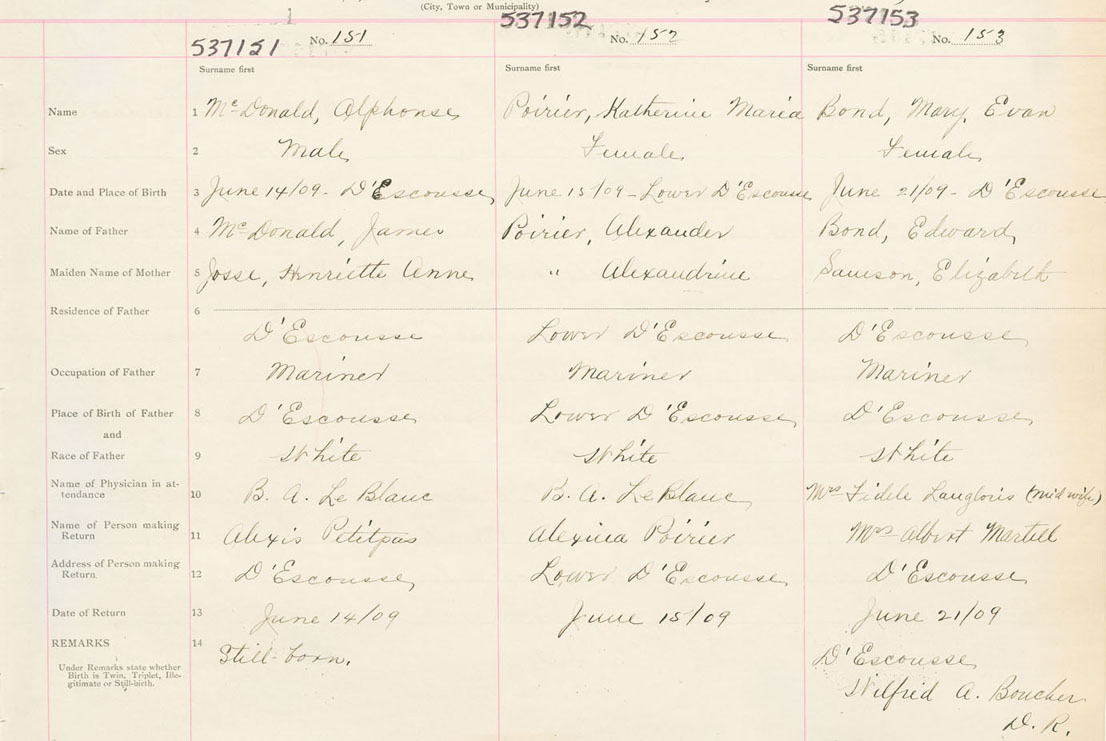 (City, Town or Municipality)
537151 No. 151 537152 No. 152 537153 No. 153
Surname first Surname first Surname first
Name 1 McDonald, Alphonse Poirier, Katherine Maria Bond, Mary Evan
Sex 2 Male Female Female
Date and Place of Birth 3 June 14/09 - D'Escousse June 15/09 - Lower D'Escousse June 21/09 - D'Escousse
Name of Father 4 McDonald, James Poirier, Alexander Bond, Edward
Maiden Name of Mother 5 Josse, Henriette Anne " Alexandrine Samson, Elizabeth
Residence of Father 6
D'Escousse Lower D'Escousse D'Escousse
Occupation of Father 7 Mariner Mariner Mariner
Place of Birth of Father 8 D'Escousse Lower D'Escousse D'Escousse
and
Race of Father 9 White White White
Name of Physician in at-
tendance 10 B. A. LeBlanc B. A. LeBlanc Mrs Fidele Langlois (midwife)
Name of Person making
Return 11 Alexis Petitpas Alexina Poirier Mrs Albert Martell
Address of Person making
Return. 12 D'Escousse Lower D'Escousse D'Escousse
Date of Return 13 June 14/09 June 15/09 June 21/09
REMARKS 14 Still-born.
Under Remarks state whether
Birth is Twin, Triplet, Ille-
gitimate or Still-birth.
D'Escousse
Wilfrid A. Boucher
D. R.